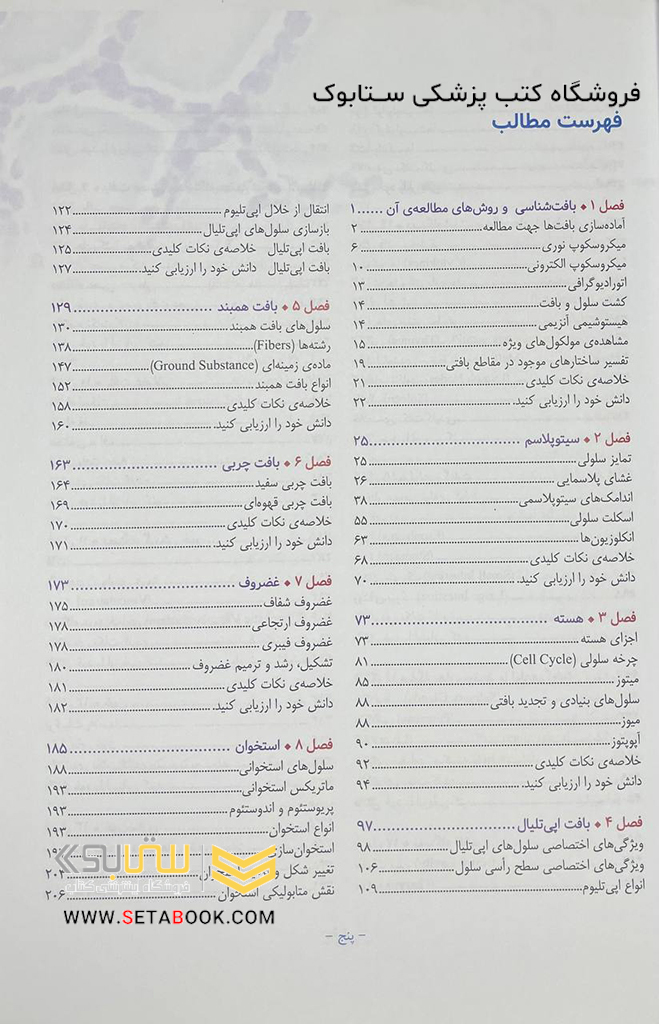 فروشگاه کتب پزشکی ستابوک
فهرست مطالب
فصل ۱ • بافت‌شناسی و روش‌های مطالعه‌ی آن ......۱
آماده‌سازی بافت‌ها جهت مطالعه..........۲
میکروسکوپ نوری..........۶
میکروسکوپ الکترونی..........۱۰
اتورادیوگرافی..........۱۳
کشت سلول و بافت..........۱۴
هیستوشیمی آنزیمی..........۱۴
مشاهده‌ی مولکول‌های ویژه..........۱۵
تفسیر ساختارهای موجود در مقاطع بافتی..........۱۹
خلاصه‌ی نکات کلیدی..........۲۱
دانش خود را ارزیابی کنید...........۲۲
فصل ۲ • سیتوپلاسم ..........۲۵
تمایز سلولی..........۲۵
غشای پلاسمایی..........۲۶
اندامک‌های سیتوپلاسمی..........۳۸
اسکلت سلولی..........۵۵
انکلوزیون‌ها..........۶۳
خلاصه‌ی نکات کلیدی..........۶۸
دانش خود را ارزیابی کنید...........۷۰
فصل ۳ • هسته ..........۷۳
اجزای هسته..........۷۳
چرخه سلولی (Cell Cycle)..........۸۱
میتوز..........۸۵
سلول‌های بنیادی و تجدید بافتی..........۸۸
میوز..........۸۸
آپوپتوز..........۹۰
خلاصه‌ی نکات کلیدی..........۹۲
دانش خود را ارزیابی کنید...........۹۴
فصل ۴ • بافت اپی‌تلیال ..........۹۷
ویژگی‌های اختصاصی سلول‌های اپی‌تلیال..........۹۸
ویژگی‌های اختصاصی سطح رأسی سلول..........۱۰۶
انواع اپی‌تلیوم..........۱۰۹
انتقال از خلال اپی‌تلیوم..........۱۲۲
بازسازی سلول‌های اپی‌تلیال..........۱۲۴
بافت اپی‌تلیال خلاصه‌ی نکات کلیدی..........۱۲۵
بافت اپی‌تلیال دانش خود را ارزیابی کنید...........۱۲۷
فصل ۵ • بافت همبند ..........۱۲۹
سلول‌های بافت همبند..........۱۳۰
رشته‌ها (Fibers)..........۱۳۸
ماده‌ی زمینه‌ای (Ground Substance)..........۱۴۷
انواع بافت همبند..........۱۵۲
خلاصه‌ی نکات کلیدی..........۱۵۸
دانش خود را ارزیابی کنید...........۱۶۰
فصل ۶ • بافت چربی ..........۱۶۳
بافت چربی سفید..........۱۶۴
بافت چربی قهوه‌ای..........۱۶۹
خلاصه‌ی نکات کلیدی..........۱۷۰
دانش خود را ارزیابی کنید...........۱۷۱
فصل ۷ • غضروف ..........۱۷۳
غضروف شفاف..........۱۷۵
غضروف ارتجاعی..........۱۷۸
غضروف فیبری..........۱۷۸
تشکیل، رشد و ترمیم غضروف..........۱۸۰
خلاصه‌ی نکات کلیدی..........۱۸۱
دانش خود را ارزیابی کنید...........۱۸۲
فصل ۸ • استخوان ..........۱۸۵
سلول‌های استخوانی..........۱۸۸
ماتریکس استخوانی..........۱۹۳
پریوستئوم و اندوستئوم..........۱۹۳
انواع استخوان..........۱۹۳
استخوان‌سازی..........
تغییر شکل و
نقش متابولیکی استخوان..........۲۰۶
ستابوک
فروشگاه اینترنتی کتاب
WWW.SETABOOK.COM
- پنج -